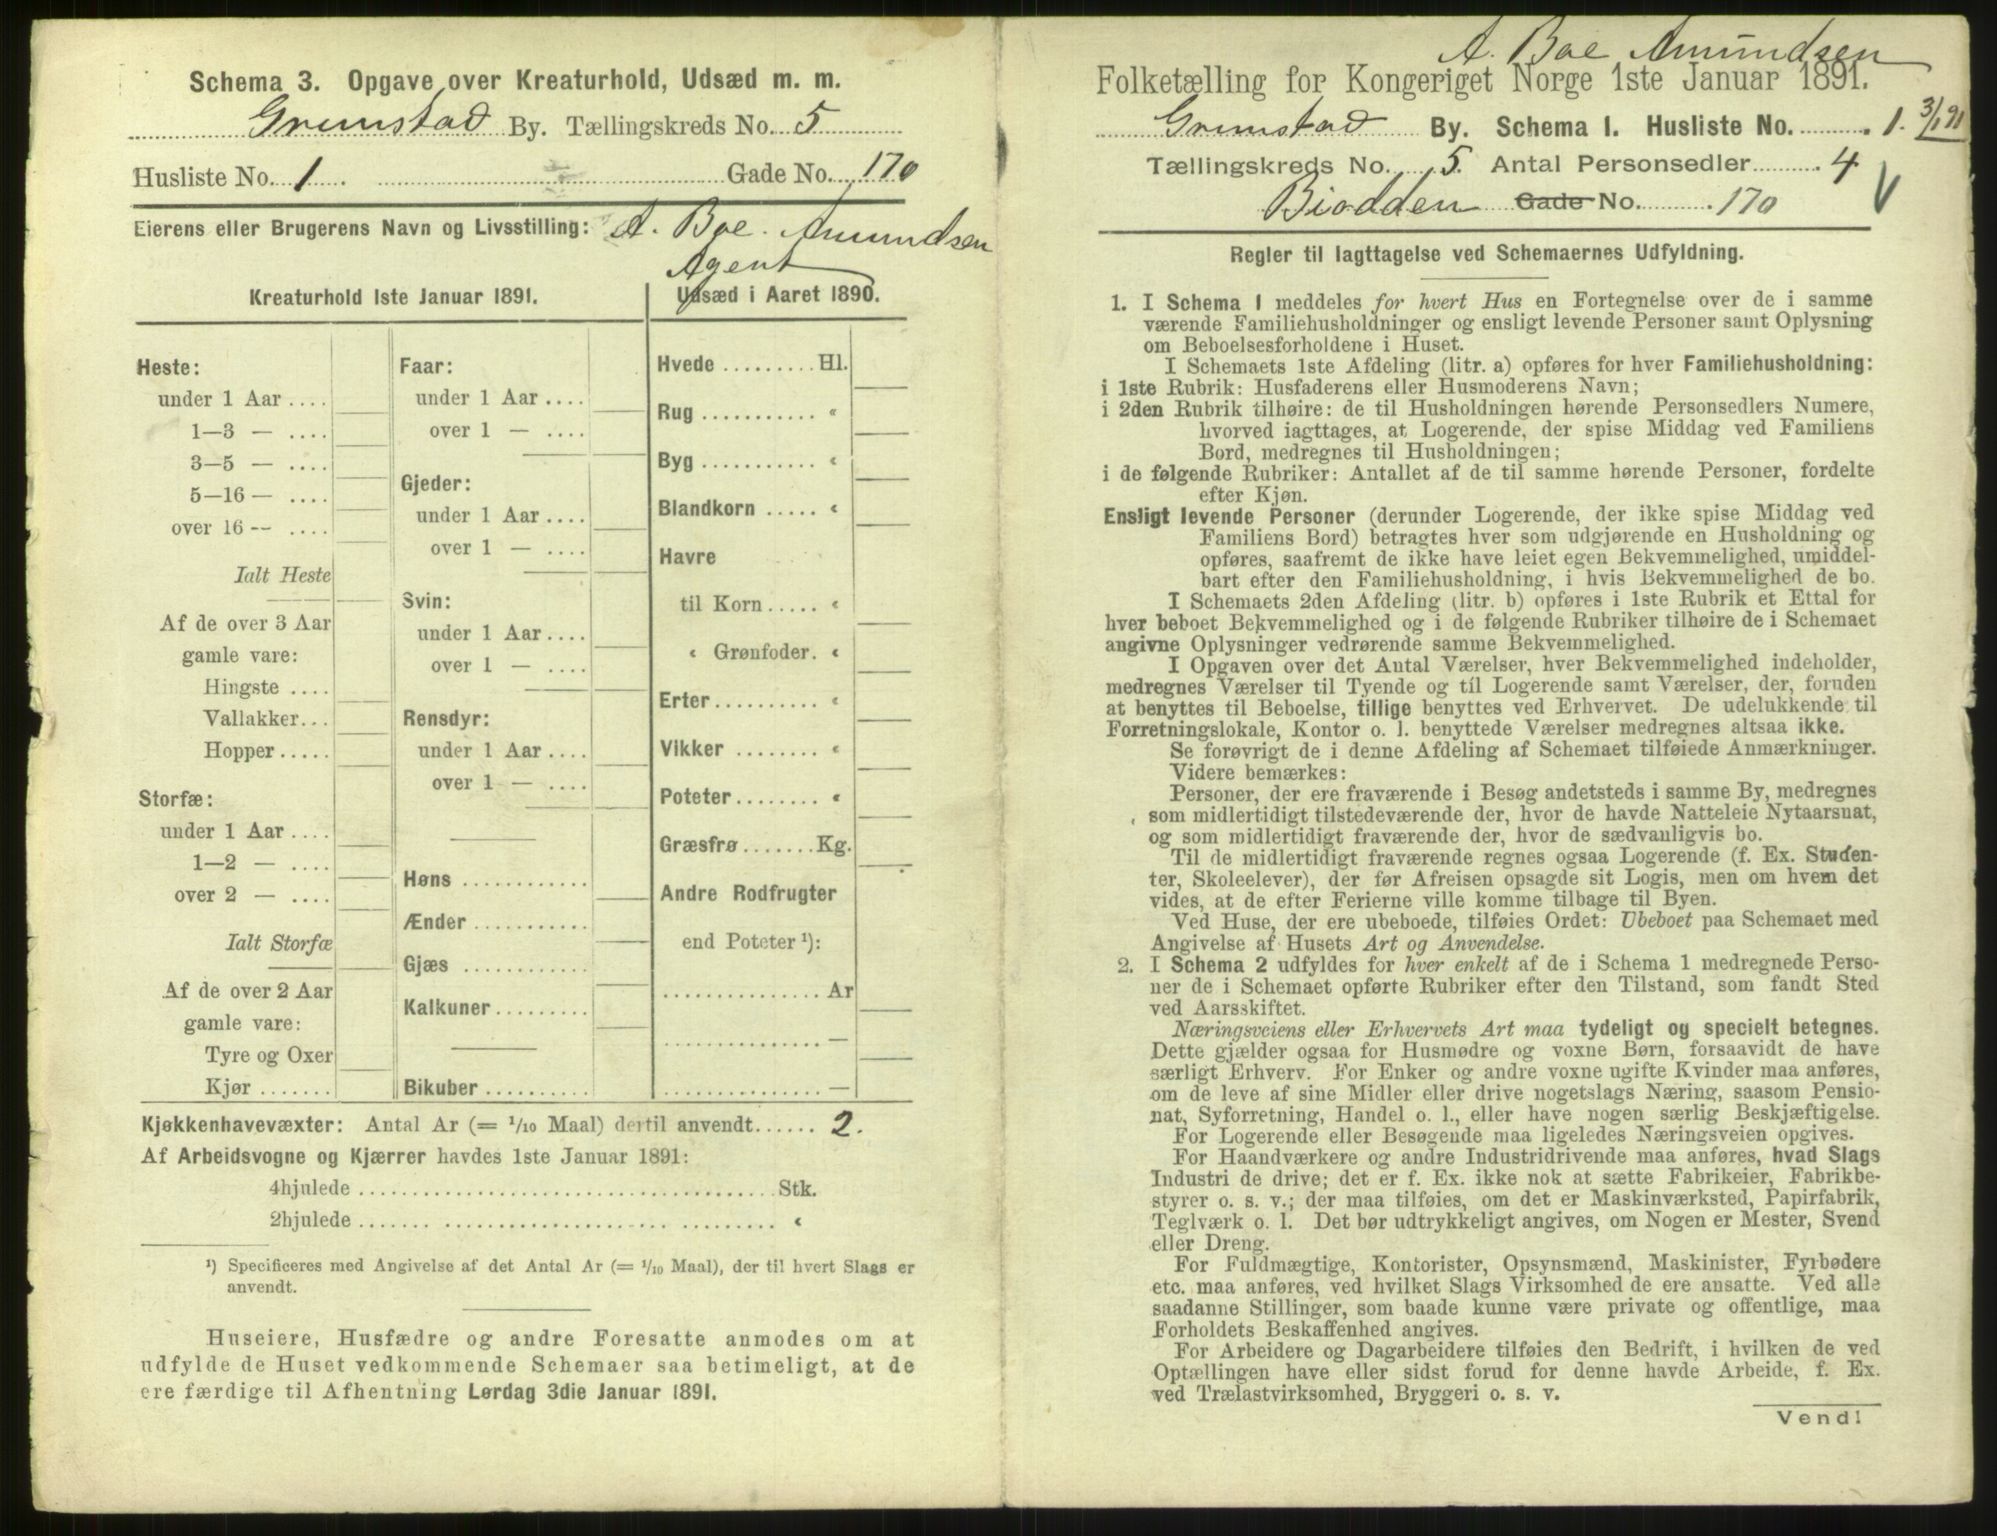 Schema 3. Opgave over Kreaturhold, Udsæd m. m.
Grimstad By. Tællingskreds No. 5
Husliste No. 1 Gade No. 170
Eierens eller Brugerens Navn og Livsstilling: A. Boe. Amundsen
Agent
Kreaturhold 1ste Januar 1891.
Heste:
under 1 Aar ....
1—3 — ....
3—5 — ....
5—16 — ....
over 16 -- ....
Ialt Heste
Af de over 3 Aar
gamle vare:
Hingste ....
Vallakker...
Hopper .....
Storfæ:
under 1 Aar ....
1—2 — ....
over 2 — ....
Ialt Storfæ
Af de over 2 Aar
gamle vare:
Tyre og Oxer
Kjør .......
Faar:
under 1 Aar ....
over 1 — ....
Gjeder:
under 1 Aar ....
over 1 — ....
Svin:
under 1 Aar ....
over 1 — ....
Rensdyr:
under 1 Aar ....
over 1 — ....
Høns ............
Ænder ...........
Gjæs ............
Kalkuner.........
Bikuber ..........
Udsæd i Aaret 1890.
Hvede ......... Hl.
Rug ........... «
Byg ........... «
Blandkorn ..... «
Havre
til Korn ..... «
« Grønfoder. «
Erter.......... «
Vikker ........ «
Poteter........ «
Græsfrø ....... Kg.
Andre Rodfrugter
end Poteter ¹):
............... Ar
............... —
............... —
Kjøkkenhavevæxter: Antal Ar (= 1/10 Maal) dertil anvendt...... 2.
Af Arbeidsvogne og Kjærrer havdes 1ste Januar 1891:
4hjulede ........................................ Stk.
2hjulede ........................................ «
¹) Specificeres med Angivelse af det Antal Ar (= 1/10 Maal), der til hvert Slags er
anvendt.
Huseiere, Husfædre og andre Foresatte anmodes om at
udfylde de Huset vedkommende Schemaer saa betimeligt, at de
ere færdige til Afhentning Lørdag 3die Januar 1891.
A. Boe Amundsen
Folketælling for Kongeriget Norge 1ste Januar 1891.
Grimstad By. Schema 1. Husliste No. 1. 3/1 91
Tællingskreds No. 5. Antal Personsedler 4
Biodden Gade No. 170
Regler til Iagttagelse ved Schemaernes Udfyldning.
1. I Schema 1 meddeles for hvert Hus en Fortegnelse over de i samme
værende Familiehusholdninger og ensligt levende Personer samt Oplysning
om Beboelsesforholdene i Huset.
I Schemaets 1ste Afdeling (litr. a) opføres for hver Familiehusholdning:
i 1ste Rubrik: Husfaderens eller Husmoderens Navn;
i 2den Rubrik tilhøire: de til Husholdningen hørende Personsedlers Numere,
hvorved iagttages, at Logerende, der spise Middag ved Familiens
Bord, medregnes til Husholdningen;
i de følgende Rubriker: Antallet af de til samme hørende Personer, fordelte
efter Kjøn.
Ensligt levende Personer (derunder Logerende, der ikke spise Middag ved
Familiens Bord) betragtes hver som udgjørende en Husholdning og
opføres, saafremt de ikke have leiet egen Bekvemmelighed, umiddel-
bart efter den Familiehusholdning, i hvis Bekvemmelighed de bo.
I Schemaets 2den Afdeling (litr. b) opføres i 1ste Rubrik et Ettal for
hver beboet Bekvemmelighed og i de følgende Rubriker tilhøire de i Schemaet
angivne Oplysninger vedrørende samme Bekvemmelighed.
I Opgaven over det Antal Værelser, hver Bekvemmelighed indeholder,
medregnes Værelser til Tyende og til Logerende samt Værelser, der, foruden
at benyttes til Beboelse, tillige benyttes ved Erhvervet. De udelukkende til
Forretningslokale, Kontor o. l. benyttede Værelser medregnes altsaa ikke.
Se forøvrigt de i denne Afdeling af Schemaet tilføiede Anmærkninger.
Videre bemærkes:
Personer, der ere fraværende i Besøg andetsteds i samme By, medregnes
som midlertidigt tilstedeværende der, hvor de havde Natteleie Nytaarsnat,
og som midlertidigt fraværende der, hvor de sædvanligvis bo.
Til de midlertidigt fraværende regnes ogsaa Logerende (f. Ex. Studen-
ter, Skoleelever), der før Afreisen opsagde sit Logis, men om hvem det
vides, at de efter Ferierne ville komme tilbage til Byen.
Ved Huse, der ere ubeboede, tilføies Ordet: Ubeboet paa Schemaet med
Angivelse af Husets Art og Anvendelse.
2. I Schema 2 udfyldes for hver enkelt af de i Schema 1 medregnede Perso-
ner de i Schemaet opførte Rubriker efter den Tilstand, som fandt Sted
ved Aarsskiftet.
Næringsveiens eller Erhvervets Art maa tydeligt og specielt betegnes.
Dette gjælder ogsaa for Husmødre og voxne Børn, forsaavidt de have
særligt Erhverv. For Enker og andre voxne ugifte Kvinder maa anføres,
om de leve af sine Midler eller drive nogetslags Næring, saasom Pensio-
nat, Syforretning, Handel o. l., eller have nogen særlig Beskjæftigelse.
For Logerende eller Besøgende maa ligeledes Næringsveien opgives.
For Haandværkere og andre Industridrivende maa anføres, hvad Slags
Industri de drive; det er f. Ex. ikke nok at sætte Fabrikeier, Fabrikbe-
styrer o. s. v.; der maa tilføies, om det er Maskinværksted, Papirfabrik,
Teglværk o. l. Det bør udtrykkeligt angives, om Nogen er Mester, Svend
eller Dreng.
For Fuldmægtige, Kontorister, Opsynsmænd, Maskinister, Fyrbødere
etc. maa anføres, ved hvilket Slags Virksomhed de ere ansatte. Ved alle
saadanne Stillinger, som baade kunne være private og offentlige, maa
Forholdets Beskaffenhed angives.
For Arbeidere og Dagarbeidere tilføies den Bedrift, i hvilken de ved
Optællingen have eller sidst forud for denne havde Arbeide, f. Ex.
ved Trælastvirksomhed, Bryggeri o. s. v.
Vend!